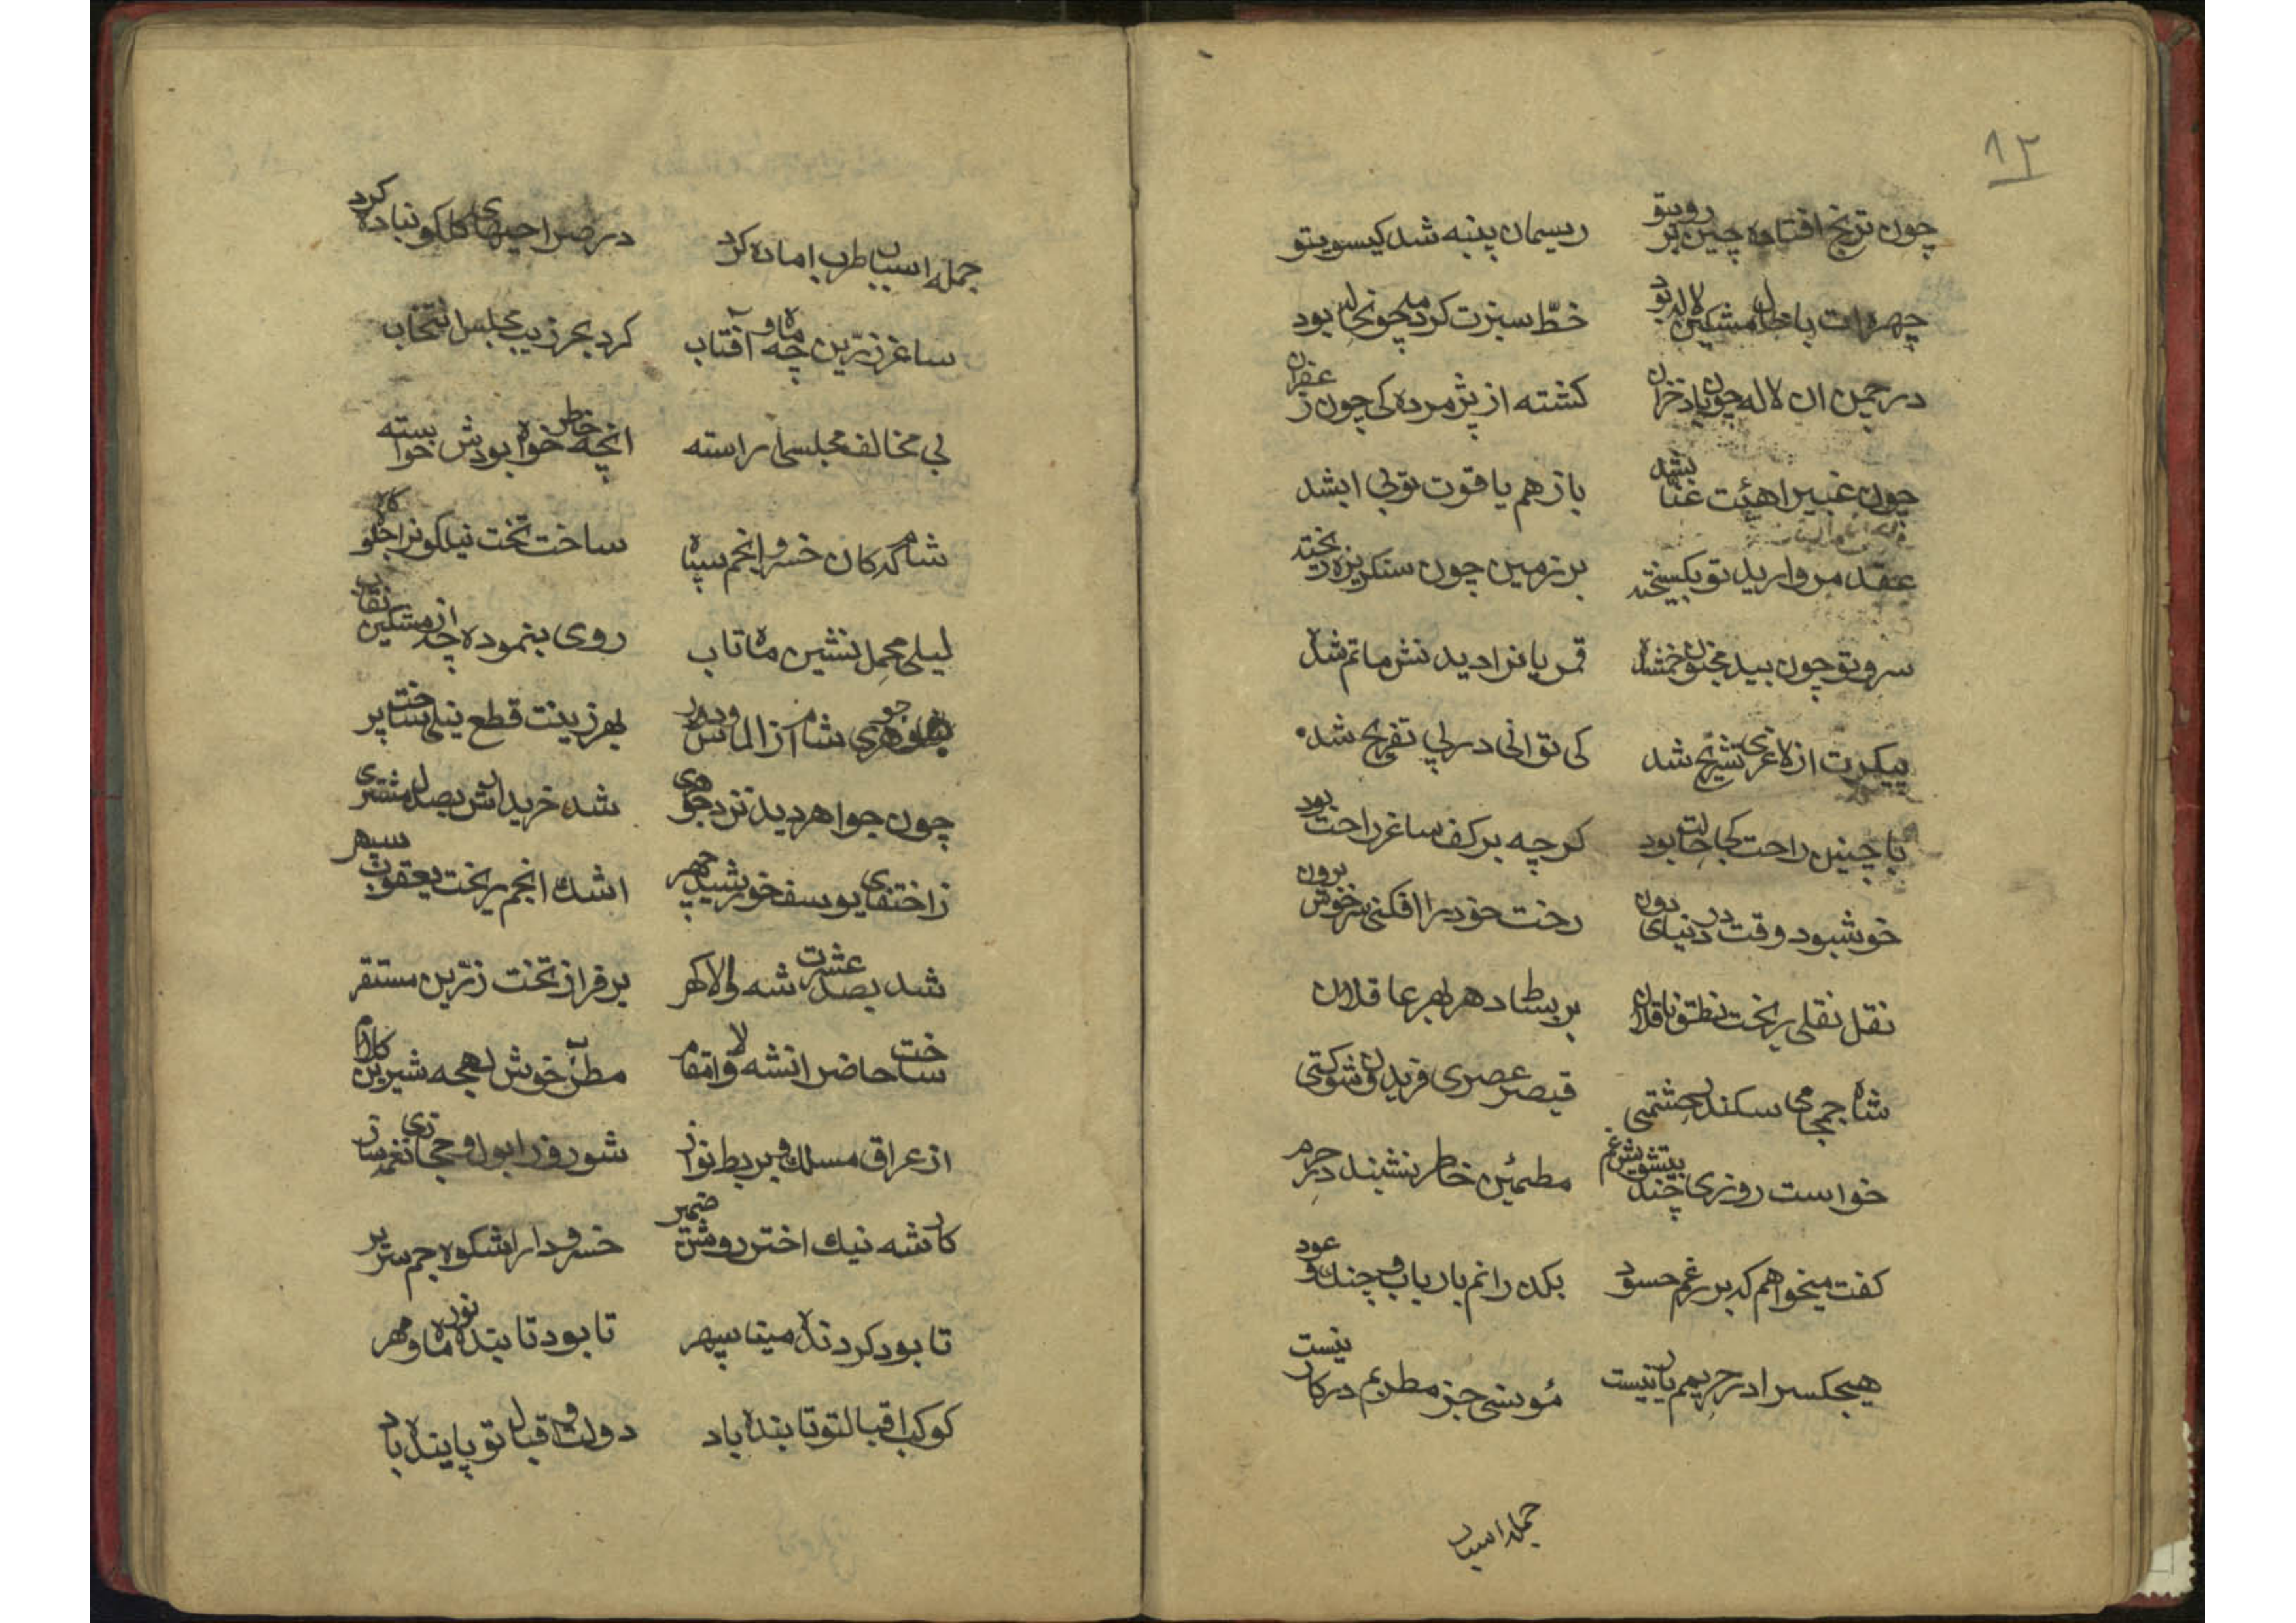 ۱۲
چون ترنج افتاده چین بر رویتو ریسمان پنبه شد کیسویتو
چهرهات با خال مشکین لاله بود خطّ سبزت کرد مه چون هاله بود
در چمن ان لاله چون باد خزان کشته از پژمردهکی چون زعفران
چون عبیر اهیئت عنّا بشد باز هم یاقوت تو بی ابشد
عقد مروارید تو بکسیخته بر زمین چون سنکریزه ریخته
سرو تو چون بید مجنون خمشده قمریانرا دیدنش ماتم شده
پیکرت از لاغری تشریح شد کی توانی در پی تفریح شد
با چنین راحت کجا حالت بود کرچه بر کف ساغر راحت بود
خوشبود وقت در دنیای دون رخت خود را افکنی سرخوش برون
نقل نقلی ریخت نطق ناقلان بر بساط دهر بهر عاقلان
شاه جمجامی سکندر حشمتی قیصر عصری فریدون شوکتی
خواست روزی چند بیتشویش غم مطمئین خاطر نشیند در حرم
کفت میخواهم که بر رغم حسود بکذرانم با رباب و چنک و عود
هیچکسرا در حریمم بار نیست مونسی جز مطربم در کار نیست
جمله اسباب
جمله اسباب طرب اماده کرد در صراحیهای کلکون باده کرد
ساغر زرّین چه ماه و آفتاب کرد بحر زیب مجلس انتخاب
بی مخالف مجلسی اراسته انچه خاطر خواه بودش خواسته
شامکه کان خسرو انجم سپاه ساخت تخت نیلکونرا جلوه کاه
لیلی محمل نشین ماهتاب روی بنموده چه از مشکین نقاب
جوهری شام از الماس و در بهر زینت قطع نیلی ساخت پر
چون جواهر دید نزد جوهری شد خریدارش بصد دل مشتری
ز اختفای یوسف خورشید چهر اشک انجم ریخت یعقوب سپهر
شد بصد عشرت شه والا کهر بر فراز تخت زرّین مستقر
ساخت حاضر انشه والا مقام مطرب خوش لهجه شیرین کلام
از عراق مسلک و بربط نواز شور و زابول و حجازی نغمه ساز
کای شه نیک اختر روشن ضمیر خسرو دارا شکوه جم سریر
تا بود کردنده مینا سپهر تا بود تابنده نور ماه و مهر
کوکب اقبالتو تابنده باد دولت و اقبال تو پاینده باد